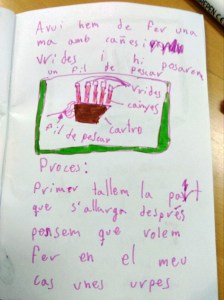 Avui hem de fer una
ma amb cañes i
vrides i hi posarem
un fil de pescar
vrides
canyes
cartro
fil de pescar
Proces:
Primer tallem la part
que s'allarga després
pensem que volem
fer en el meu
cas unes urpes